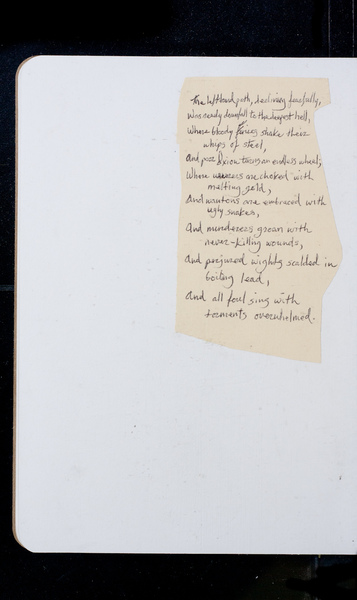 The left hand path, declining fearfully,
Was ready downfall to the deepest hell,
Where bloody furies shake their
whips of steel,
And poor Ixion turns an endless wheel;
Where usurers are choked with
melting gold,
And wantons are embraced with
ugly snakes,
And murderers groan with
never-killing wounds,
And perjured wights scalded in
boiling lead,
And all foul sins with
torments overwhelmed.